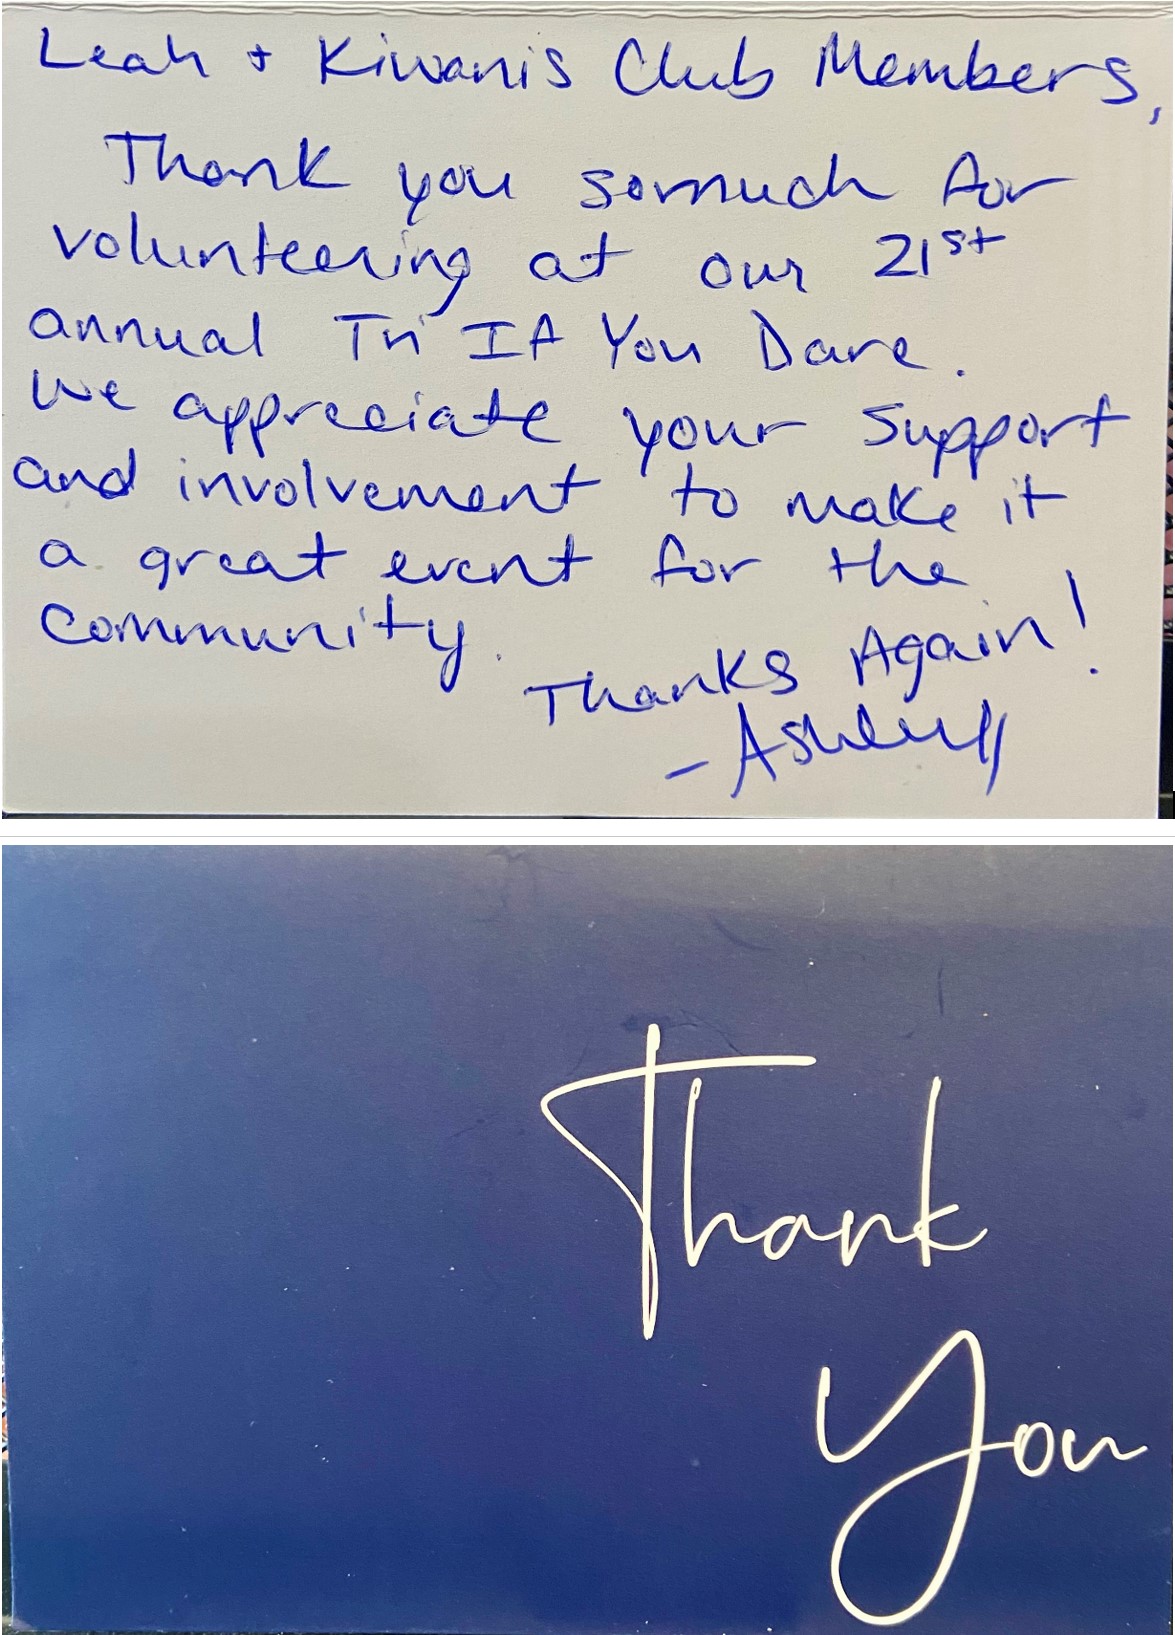 Leah + Kiwanis Club Members,
Thank you so much for
volunteering at our 21st
annual Tri If You Dare.
We appreciate your support
and involvement to make it
a great event for the
community.
Thanks Again!
- Ashley
Thank
You